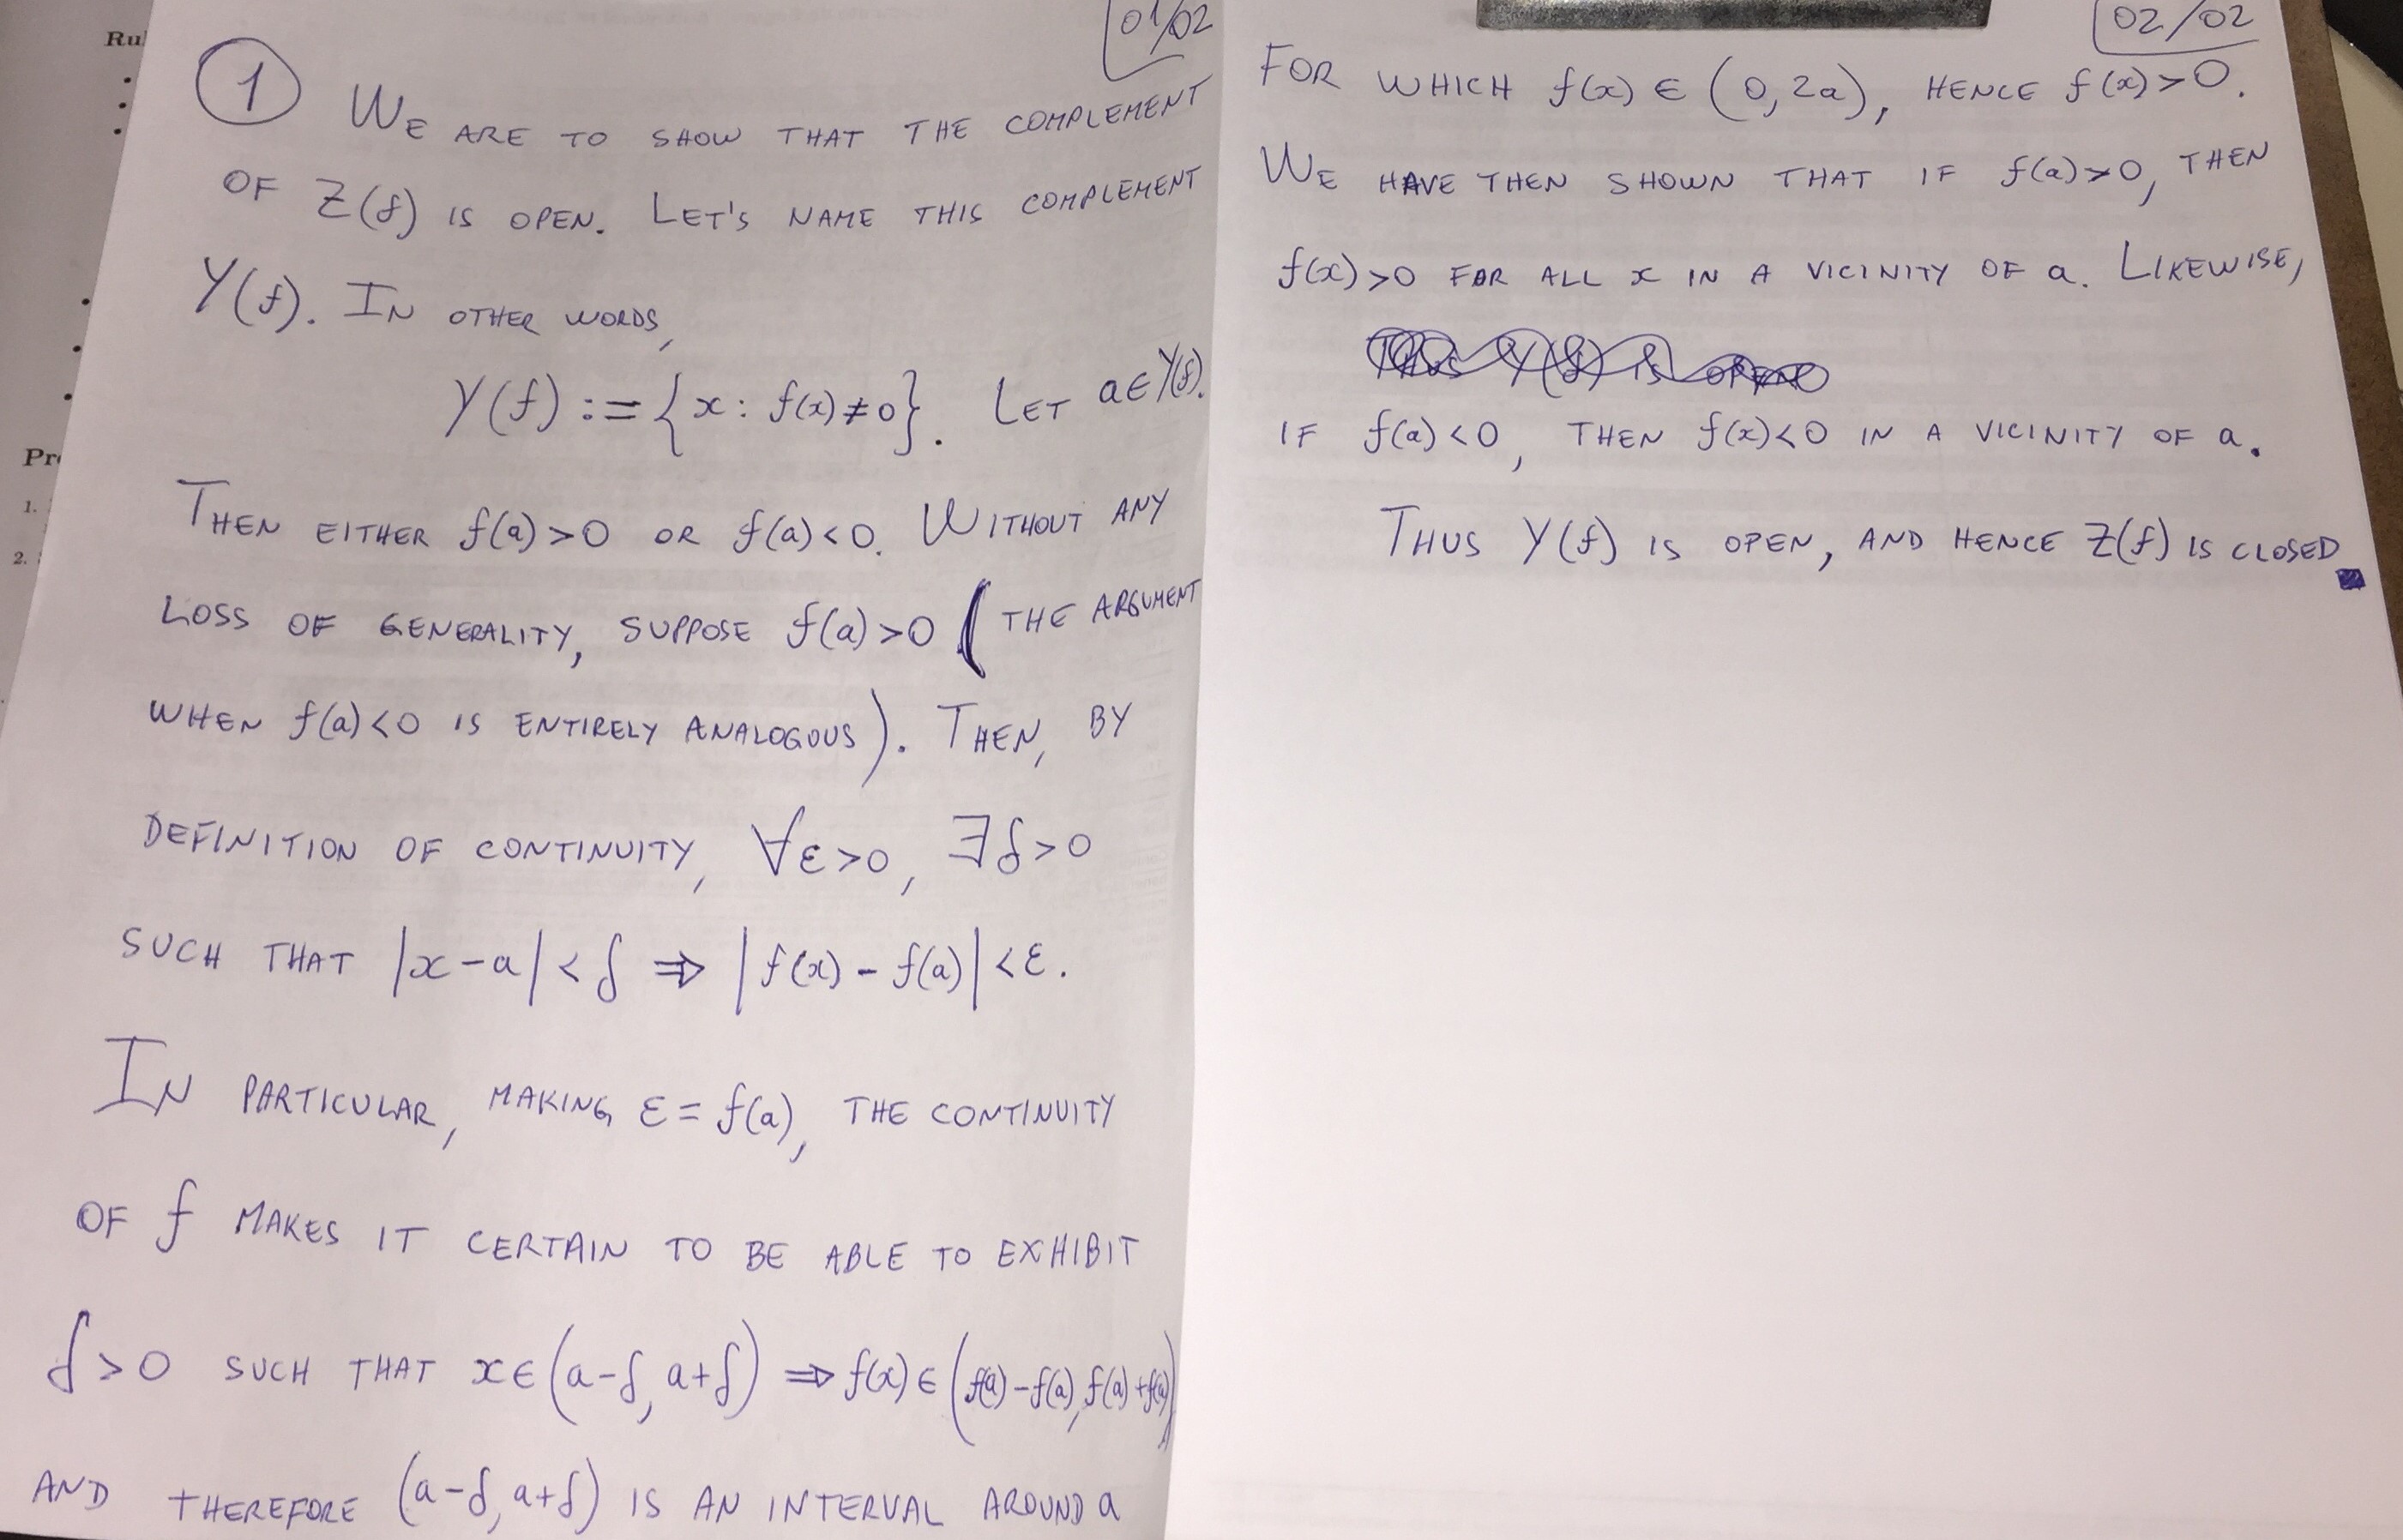 Ru
Pr
1.
2.
01/02
1 WE ARE TO SHOW THAT THE COMPLEMENT
OF Z(f) IS OPEN. LET'S NAME THIS COMPLEMENT
Y(f). IN OTHER WORDS,
Y(f) := {x : f(x) ≠ 0}. LET a ∈ Y(f).
THEN EITHER f(a) > 0 OR f(a) < 0. WITHOUT ANY
LOSS OF GENERALITY, SUPPOSE f(a) > 0 (THE ARGUMENT
WHEN f(a) < 0 IS ENTIRELY ANALOGOUS). THEN, BY
DEFINITION OF CONTINUITY, ∀ε > 0, ∃δ > 0
SUCH THAT |x - a| < δ ⇒ |f(x) - f(a)| < ε.
IN PARTICULAR, MAKING ε = f(a), THE CONTINUITY
OF f MAKES IT CERTAIN TO BE ABLE TO EXHIBIT
δ > 0 SUCH THAT x ∈ (a-δ, a+δ) ⇒ f(x) ∈ (f(a) - f(a), f(a) + f(a))
AND THEREFORE (a-δ, a+δ) IS AN INTERVAL AROUND a
02/02
FOR WHICH f(x) ∈ (0, 2a), HENCE f(x) > 0.
WE HAVE THEN SHOWN THAT IF f(a) > 0, THEN
f(x) > 0 FOR ALL x IN A VICINITY OF a. LIKEWISE,
THUS Y(f) IS OPEN
IF f(a) < 0, THEN f(x) < 0 IN A VICINITY OF a.
THUS Y(f) IS OPEN, AND HENCE Z(f) IS CLOSED ■